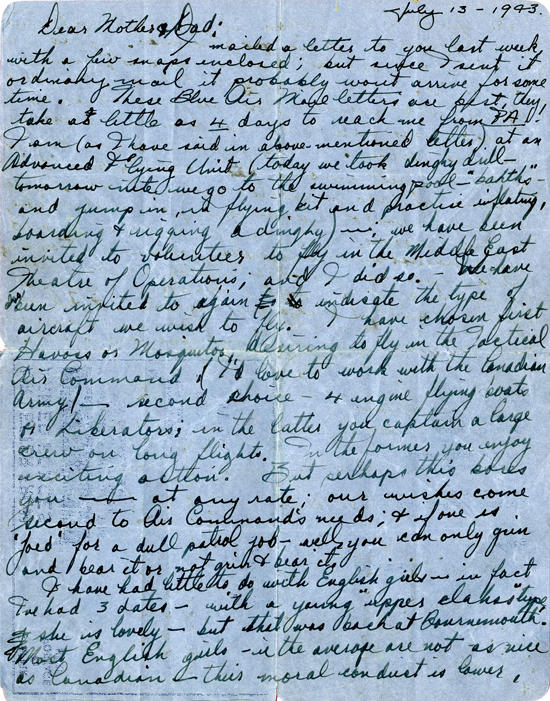 July 13 - 1943.
Dear Mother & Dad;
I mailed a letter to you last week,
with a few snaps enclosed; but since I sent it
ordinary mail it probably wont arrive for some
time. These Blue Air Mail letters are fast, they
take as little as 4 days to reach me from PA
I am (as I have said in above-mentioned letter) at an
Advanced Flying Unit, (today we took dinghy drill-
tomorrow nite we go to the swimming pool - "bahths"-
and jump in, in flying kit and practice inflating,
boarding & rigging a dinghy) - we have been
invited to volunteer to fly in the Middle East
Theatre of Operations; and I did so. - We have
been invited to again indicate the type of
aircraft we wish to fly. I have chosen first
Havocs or Mosquitos, desiring to fly in the Tactical
Air Command, (I'd love to work with the Canadian
Army! - second choice - 4 engine flying boats
or Liberators; in the latter you captain a large
crew on long flights. In the former you enjoy
exciting action. But perhaps this bores
you - at any rate; our wishes come
second to Air Command's needs; & if one is
"joed" for a dull patrol job - well, you can only grin
and bear it or not grin & bear it.
I have had little to do with English girls - in fact
I've had 3 dates - with a young "upper clahss" type
she is lovely - but that was back at Bournemouth.
Most English girls - ie the average are not as nice
as Canadian - their moral conduct is lower,